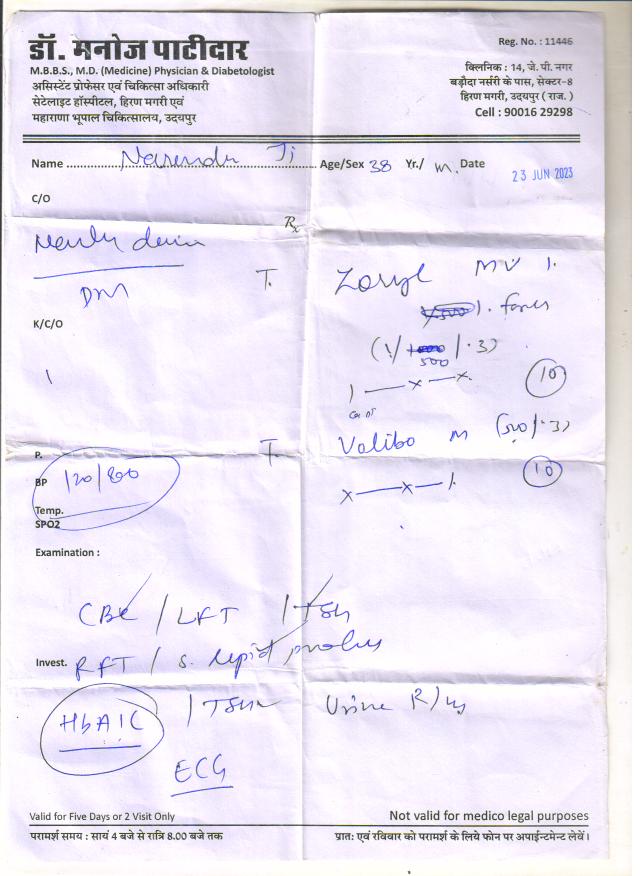 डॉ. मनोज पाटीदार
M.B.B.S., M.D. (Medicine) Physician & Diabetologist
असिस्टेंट प्रोफेसर एवं चिकित्सा अधिकारी
सेटेलाइट हॉस्पीटल, हिरण मगरी एवं
महाराणा भूपाल चिकित्सालय, उदयपुर
Reg. No. : 11446
क्लिनिक : 14, जे. पी. नगर
बड़ौदा नर्सरी के पास, सेक्टर-8
हिरण मगरी, उदयपुर ( राज. )
Cell : 90016 29298
Name Narendr Ji Age/Sex 38 Yr./ M. Date 23 JUN 2023
C/O
Rx
Newly
DM
T. Zoryl MV 1.
K/C/O
500
1 — x — x 10
T. Valibo M (500/.3)
x — x — 1 10
P.
BP 120/800
Temp.
SPO2
Examination :
CBC / LFT / TSH
Invest. RFT / S. lipid
HbA1C Urine R/M
ECG
Valid for Five Days or 2 Visit Only
Not valid for medico legal purposes
परामर्श समय : सायं 4 बजे से रात्रि 8.00 बजे तक
प्रातः एवं रविवार को परामर्श के लिये फोन पर अपाईन्टमेन्ट लेवें।